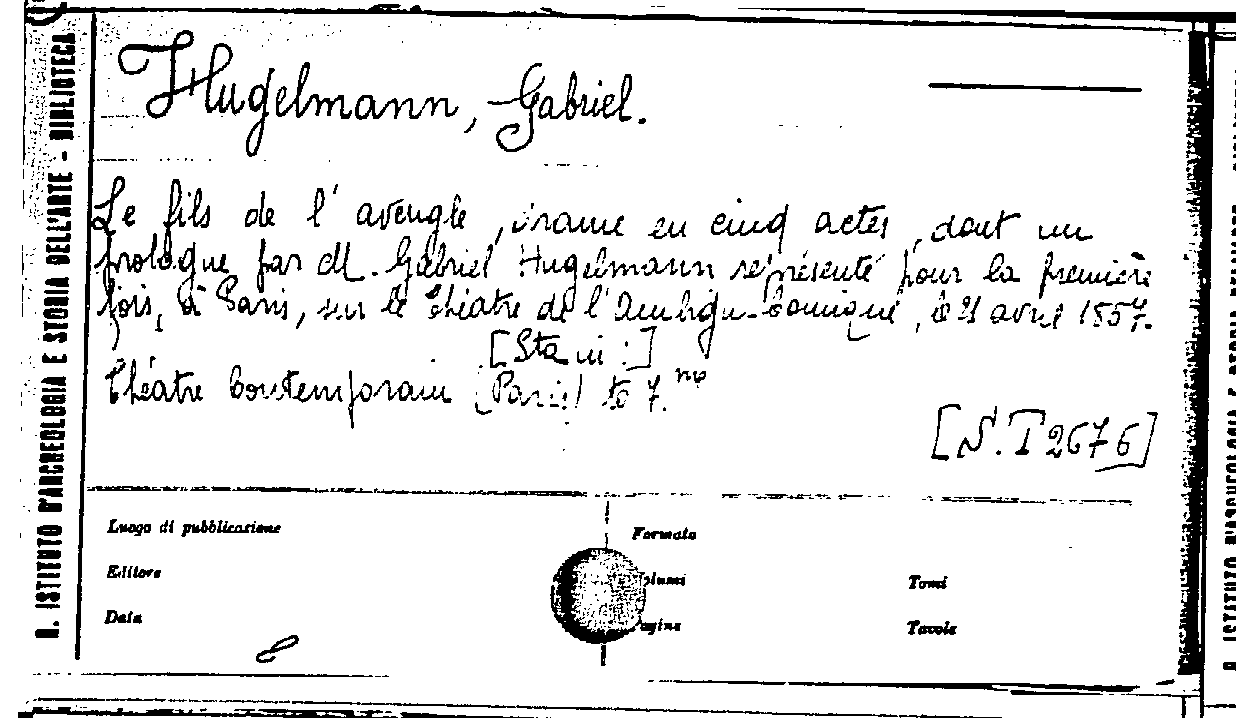 R. ISTITUTO D'ARCHEOLOGIA E STORIA DELL'ARTE - BIBLIOTECA
Hugelmann, Gabriel.
Le fils de l'aveugle, drame en cinq actes, dont un
prologue par M. Gabriel Hugelmann représenté pour la première
fois, à Paris, sur le Théatre de l'Ambigu-Comique, le 21 avril 1857.
[Sta in:]
Théatre Contemporain (Paris) to 7.mo
[S.T 2676]
Luogo di pubblicazione
Formato
Editore
Volumi
Tomi
Data
Pagine
Tavole